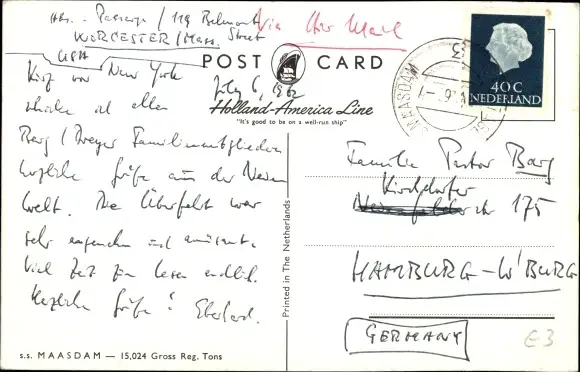 Abs.- / 119 Belmont
WORCESTER / Mass. Street
USA
Via Air Mail
POST CARD
Holland-America Line
"It's good to be on a well-run ship"
40 C
NEDERLAND
MAASDAM
Kurz vor New York
July 6, 1962
allen
Berg / Dreyer Familienmitgliedern
herzliche Grüße aus der Neuen
Welt. Die Überfahrt war
sehr angenehm und amüsant.
Viel Zeit zum Lesen endlich.
Herzliche Grüße! Eberhard.
Printed in The Netherlands
Familie Pastor Berg
Kirchdorfer
175
HAMBURG-W'BURG
GERMANY
€3
s.s. MAASDAM — 15,024 Gross Reg. Tons